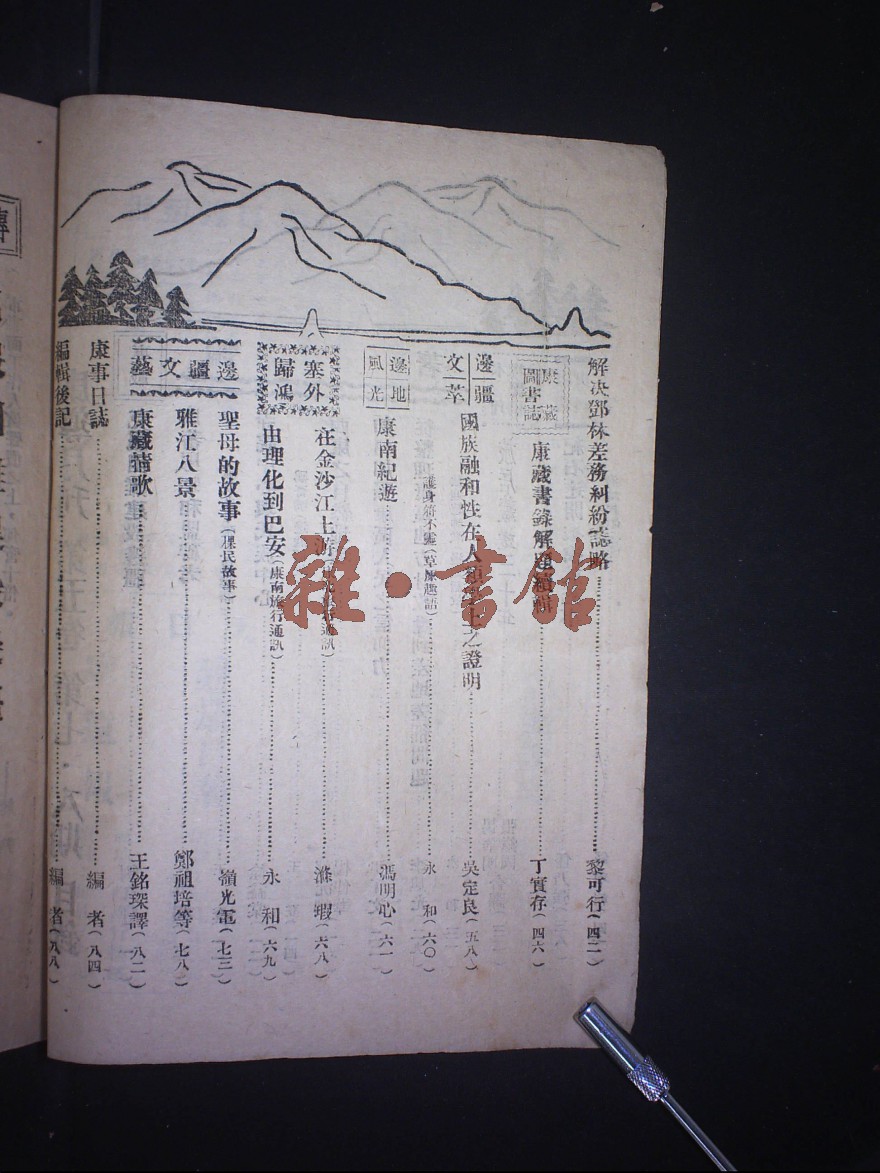 解决鄧林差務糾紛誌略……黎可行(四二)
康藏圖書誌
康藏書錄解題續輯……丁實存(四六)
邊疆文萃
國族融和性在人類學上之證明……吳定良(五八)
護身符不靈(草康趣語)……永 和(六〇)
邊地風光
康南紀遊……馮明心(六一)
塞外歸鴻
在金沙江上游……滌瑕(六八)
由理化到巴安(康南旅行通訊)……永 和(六九)
邊疆文藝
聖母的故事(倮民故事)……嶺光電(七三)
雅江八景……鄭祖培等(七八)
康藏情歌……王銘琛譯(八二)
康事日誌……編 者(八四)
編輯後記……編 者(八八)
雜·書館